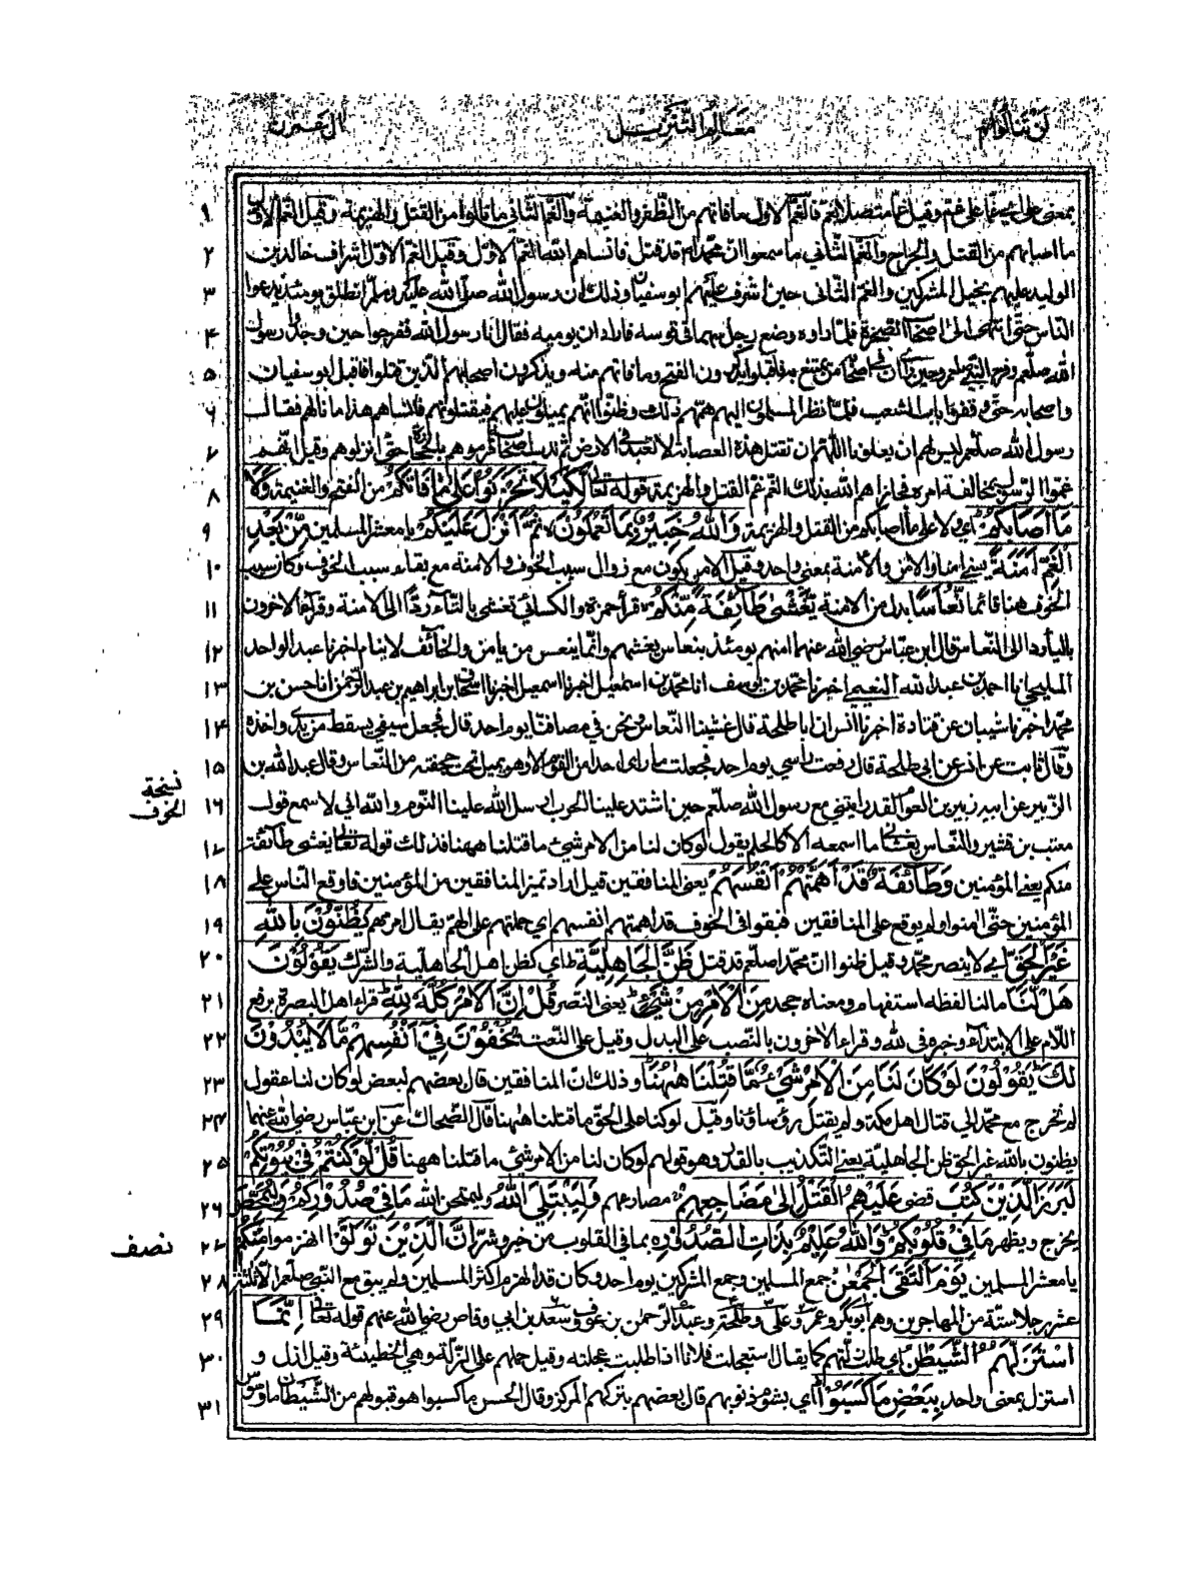 لن تنالوا ٤ معالم التنزيل آل عمران
١ بمعنى على اي غما على غم وقيل غما متصلا بغم فالغم الاول ما فاتهم من الظفر والغنيمة والغم الثاني ما نالوا من القتل والهزيمة وقيل الغم الاول
٢ ما اصابهم من القتل والجراح والغم الثاني ما سمعوا ان محمدا قد قتل فانساهم الغم الاول وقيل الغم الاول اشراف خالد بن
٣ الوليد عليهم بخيل المشركين والغم الثاني حين اشرف عليهم ابو سفيان وذلك ان رسول الله صلى الله عليه وسلم انطلق يومئذ يدعوا
٤ الناس حتى انتهى الى اصحاب الصخرة فلما راوه وضع رجل سهما في قوسه فاراد ان يرميه فقال انا رسول الله ففرحوا حين وجدوا رسول
٥ الله صلعم وفرح النبي صلعم حين راى ان في اصحابه من يمتنع به فاقبلوا يذكرون الفتح وما فاتهم منه ويذكرون اصحابهم الذين قتلوا فاقبل ابو سفيان
٦ واصحابه حتى وقفوا بباب الشعب فلما نظر المسلمون اليهم همهم ذلك وظنوا انهم يميلون عليهم فيقتلونهم فانساهم هذا ما نالهم فقال
٧ رسول الله صلعم ليس لهم ان يعلونا اللهم ان تقتل هذه العصابة لا تعبد في الارض ثم ندب اصحابه فرموهم بالحجارة حتى انزلوهم وقيل انهم
٨ غموا الرسول بمخالفة امره فجازاهم الله بذلك الغم غم القتل والهزيمة قوله تعالى لِكَيْلَا تَحْزَنُوْا عَلٰى مَا فَاتَكُمْ من الفتح والغنيمة وَلَا
٩ مَا اَصَابَكُمْ اي ولا على ما اصابكم من القتل والهزيمة وَاللّٰهُ خَبِيْرٌ بِمَا تَعْمَلُوْنَ ثُمَّ اَنْزَلَ عَلَيْكُمْ يا معشر المسلمين مِّنْ بَعْدِ
١٠ الْغَمِّ اَمَنَةً يعني امنا والامن والامنة بمعنى واحد وقيل الامن يكون مع زوال سبب الخوف والامنة مع بقاء سبب الخوف وكان سبب
١١ الخوف هنا قائما نُّعَاسًا بدل من الامنة يَّغْشٰى طَآئِفَةً مِّنْكُمْ قرأ حمزة والكسائي تغشى بالتاء ردا الى الامنة وقرأ الاخرون
١٢ بالياء ردا الى النعاس قال ابن عباس رضي الله عنهما امنهم يومئذ بنعاس يغشهم وانما ينعس من يامن والخائف لا ينام اخبرنا عبد الواحد
١٣ المليحي انا احمد بن عبد الله النعيمي اخبرنا محمد بن يوسف انا محمد بن اسمعيل اخبرنا اسمعيل اخبرنا اسحاق بن ابراهيم بن عبد الرحمن انا حسن بن
١٤ محمد اخبرنا شيبان عن قتادة اخبرنا انس ان ابا طلحة قال غشينا النعاس ونحن في مصافنا يوم احد قال فجعل سيفي يسقط من يدي واخذه
١٥ وقال ثابت عن انس عن ابي طلحة قال رفعت راسي يوم احد فجعلت ما ارى احدا من القوم الا وهو يميل تحت حجفته من النعاس وقال عبد الله بن
١٦ الزبير عن ابيه زبير بن العوام لقد رايتني مع رسول الله صلعم حين اشتد علينا الحرب ارسل الله علينا النوم والله اني لاسمع قول
نسخة
الخوف
١٧ معتب بن قشير والنعاس يغشاني ما اسمعه الا كالحلم يقول لو كان لنا من الامر شيئ ما قتلنا ههنا فذلك قوله تعالى يغشى طائفة
١٨ منكم يعني المؤمنين وَطَآئِفَةٌ قَدْ اَهَمَّتْهُمْ اَنْفُسُهُمْ يعني المنافقين قيل اراد تميز المنافقين من المؤمنين فاوقع النعاس على
١٩ المؤمنين حتى امنوا ولم يوقع على المنافقين فبقوا في الخوف قد اهمتهم انفسهم اي حملتهم على الهم يقال امر مهم يَظُنُّوْنَ بِاللّٰهِ
٢٠ غَيْرَ الْحَقِّ اي لا ينصر محمدا وقيل ظنوا ان محمدا صلعم قد قتل ظَنَّ الْجَاهِلِيَّةِ اي كظن اهل الجاهلية والشرك يَقُوْلُوْنَ
٢١ هَلْ لَّنَا ما لنا لفظه استفهام ومعناه جحد مِنَ الْاَمْرِ مِنْ شَيْءٍ يعني النصر قُلْ اِنَّ الْاَمْرَ كُلَّهٗ لِلّٰهِ قراء اهل البصرة برفع
٢٢ اللام على الابتداء وخبره في لله وقراء الاخرون بالنصب على البدل وقيل على النعت يُخْفُوْنَ فِيْٓ اَنْفُسِهِمْ مَّا لَا يُبْدُوْنَ
٢٣ لَكَ يَقُوْلُوْنَ لَوْ كَانَ لَنَا مِنَ الْاَمْرِ شَيْءٌ مَّا قُتِلْنَا هٰهُنَا وذلك ان المنافقين قال بعضهم لبعض لو كان لنا عقول
٢٤ لم نخرج مع محمد الى قتال اهل مكة ولم يقتل رؤساؤنا وقيل لو كنا على الحق ما قتلنا ههنا قال الضحاك عن ابن عباس رضي الله عنهما
٢٥ يظنون بالله غير الحق ظن الجاهلية يعني التكذيب بالقدر وهو قولهم لو كان لنا من الامر شيئ ما قتلنا ههنا قُلْ لَّوْ كُنْتُمْ فِيْ بُيُوْتِكُمْ
٢٦ لَبَرَزَ الَّذِيْنَ كُتِبَ قضى عَلَيْهِمُ الْقَتْلُ اِلٰى مَضَاجِعِهِمْ مصارعهم وَلِيَبْتَلِيَ اللّٰهُ وليمتحن الله مَا فِيْ صُدُوْرِكُمْ وَلِيُمَحِّصَ
٢٧ يخرج ويظهر مَا فِيْ قُلُوْبِكُمْ وَاللّٰهُ عَلِيْمٌ بِذَاتِ الصُّدُوْرِ بما في القلوب من خير وشر اِنَّ الَّذِيْنَ تَوَلَّوْا انهزموا مِنْكُمْ
نصف
٢٨ يا معشر المسلمين يَوْمَ الْتَقَى الْجَمْعٰنِ جمع المسلمين وجمع المشركين يوم احد وكان قد انهزم اكثر المسلمين ولم يبق مع النبي صلعم الا ثلثة
٢٩ عشر رجلا ستة من المهاجرين وهم ابو بكر وعمر وعلي وطلحة وعبد الرحمن بن عوف وسعد بن ابي وقاص رضي الله عنهم قوله تعالى اِنَّمَا
٣٠ اسْتَزَلَّهُمُ الشَّيْطٰنُ اي طلب زلتهم كما يقال استعجلت فلانا اذا طلبت عجلته وقيل حملهم على الزلة وهي الخطيئة وقيل ازل و
٣١ استزل بمعنى واحد بِبَعْضِ مَا كَسَبُوْا اي بشوم ذنوبهم قال بعضهم بتركهم المركز وقال الحسن ما كسبوا هو قبولهم من الشيطان ما وسوس